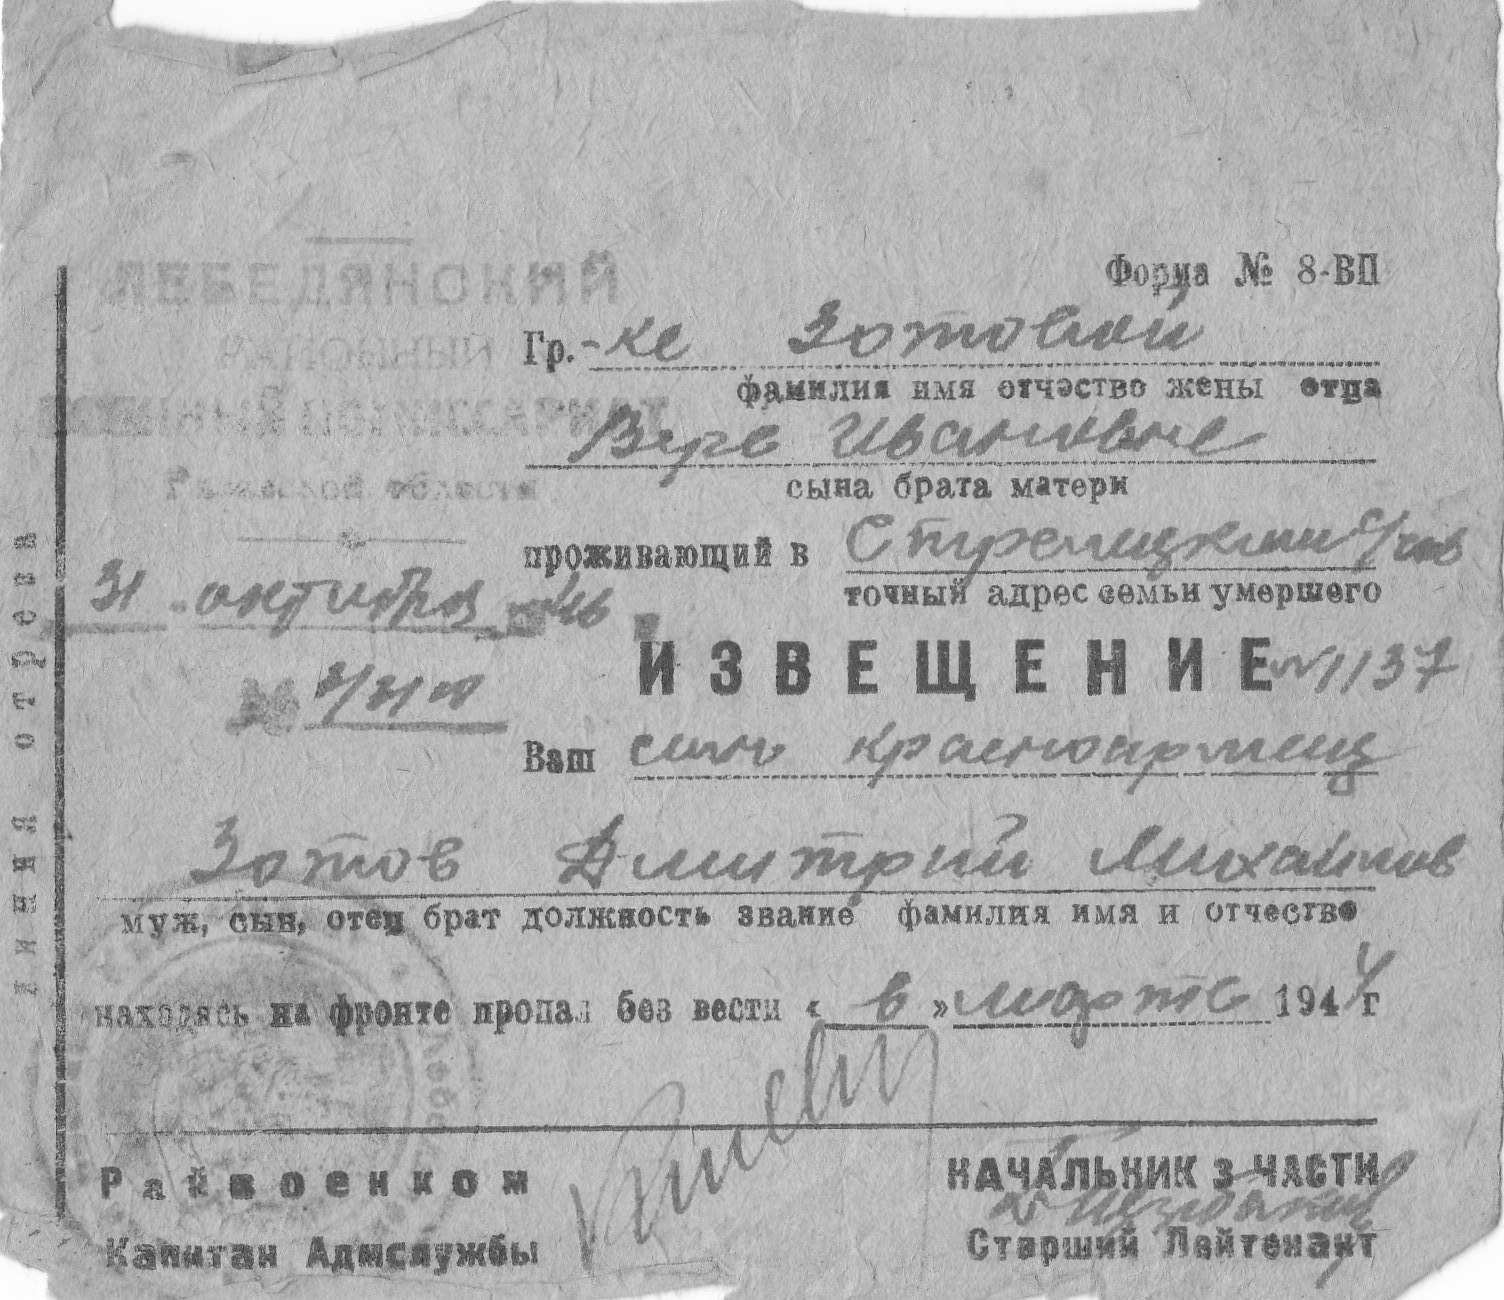 Форма № 8-ВП
ЛЕБЕДЯНСКИЙ
РАЙОННЫЙ
ВОЕННЫЙ КОМИССАРИАТ
Рязанской области
31 октября 46
№ 2/3100
линия отреза
Гр.-ке Зотовой
фамилия имя отчество жены отца
Вере Ивановне
сына брата матери
проживающий в Стрелецкий с/сов
точный адрес семьи умершего
ИЗВЕЩЕНИЕ №1137
Ваш сын красноармеец
Зотов Дмитрий Михайлов
муж, сын, отец брат должность звание фамилия имя и отчество
находясь на фронте пропал без вести « в » марте 1944 г
Райвоенком
НАЧАЛЬНИК 3 ЧАСТИ
Капитан Адмслужбы
Старший Лейтенант